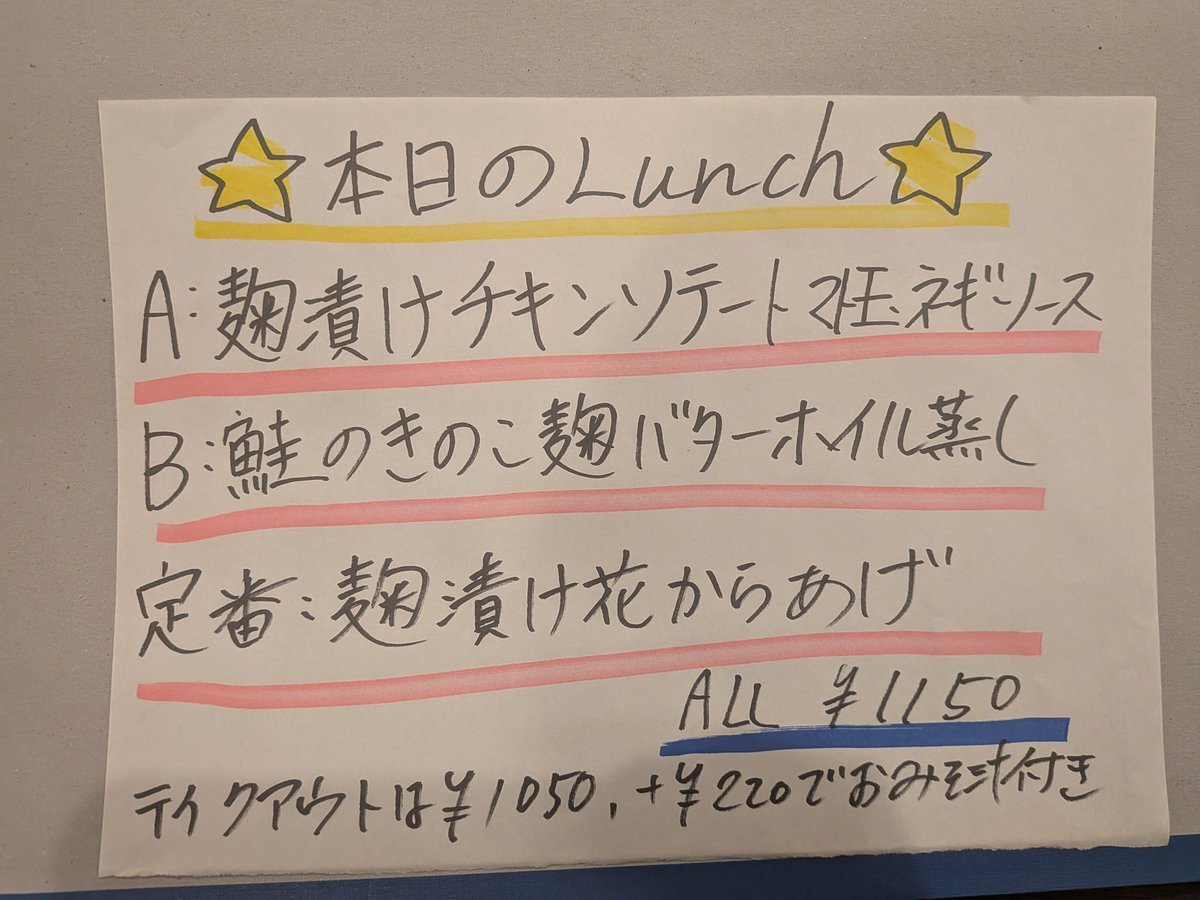 本日のLunch
A:麹漬けチキンソテートマト玉ネギソース
B:鮭のきのこ麹バターホイル蒸し
定番:麹漬け花からあげ
ALL ¥1150
テイクアウトは¥1050, +¥220でおみそ汁付き